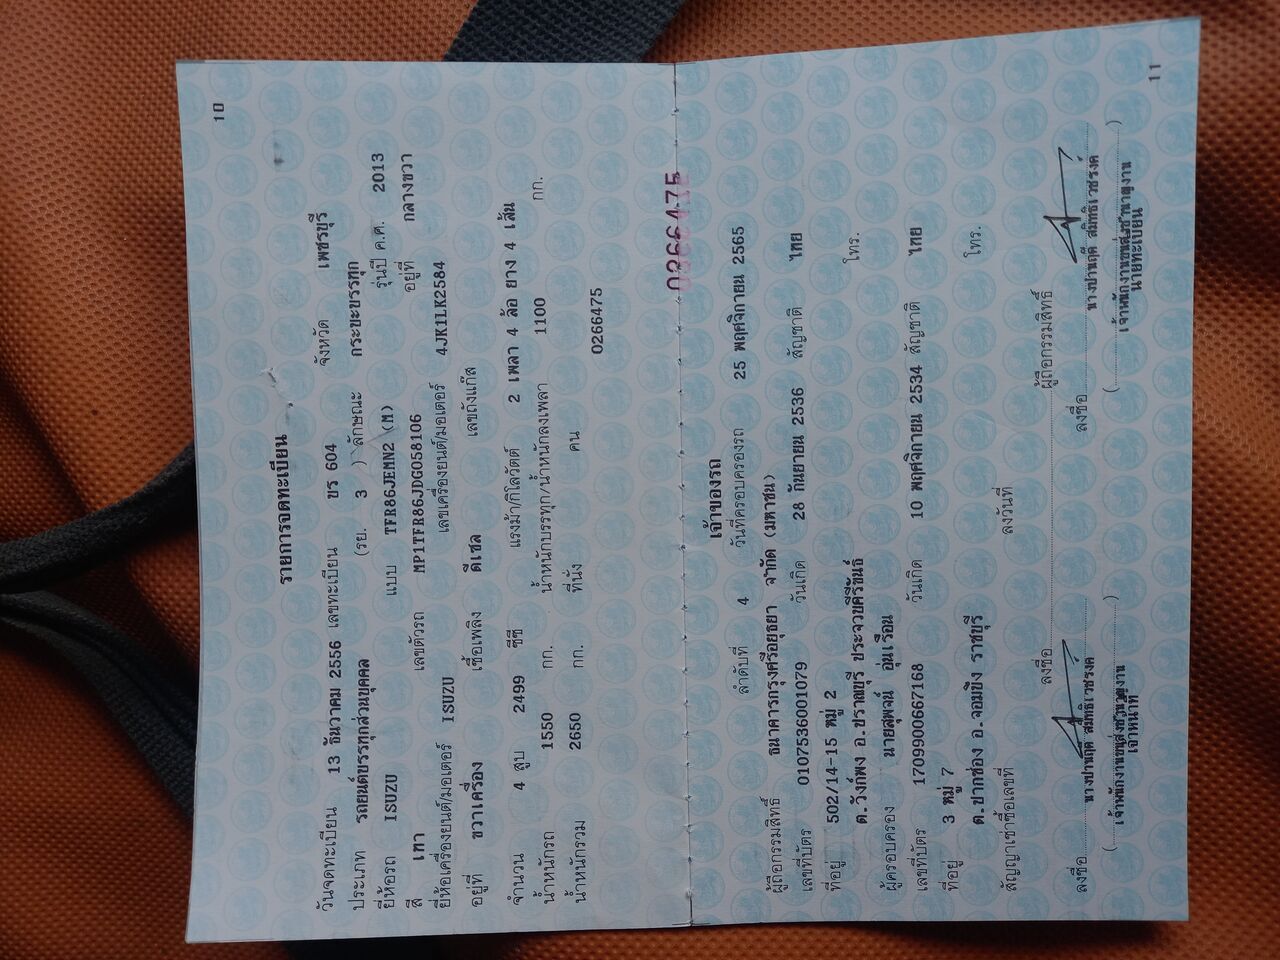 10
รายการจดทะเบียน
วันจดทะเบียน 13 ธันวาคม 2556 เลขทะเบียน ขร 604 จังหวัด เพชรบุรี
ประเภท รถยนต์บรรทุกส่วนบุคคล (รย. 3 ) ลักษณะ กระบะบรรทุก
ยี่ห้อรถ ISUZU แบบ TFR86JEMN2 (M) รุ่นปี ค.ศ. 2013
สี เทา เลขตัวรถ MP1TFR86JDG058106 อยู่ที่ กลางขวา
ยี่ห้อเครื่องยนต์/มอเตอร์ ISUZU เลขเครื่องยนต์/มอเตอร์ 4JK1LK2584
อยู่ที่ ขวาเครื่อง เชื้อเพลิง ดีเซล เลขถังแก๊ส
จำนวน 4 สูบ 2499 ซีซี แรงม้า/กิโลวัตต์ 2 เพลา 4 ล้อ ยาง 4 เส้น
น้ำหนักรถ 1550 กก. น้ำหนักบรรทุก/น้ำหนักลงเพลา 1100 กก.
น้ำหนักรวม 2650 กก. ที่นั่ง คน
0266475
0266475
เจ้าของรถ
ลำดับที่ 4 วันที่ครอบครองรถ 25 พฤศจิกายน 2565
ผู้ถือกรรมสิทธิ์ ธนาคารกรุงศรีอยุธยา จำกัด (มหาชน)
เลขที่บัตร 0107536001079 วันเกิด 28 กันยายน 2536 สัญชาติ ไทย
ที่อยู่ 502/14-15 หมู่ 2 โทร.
ต.วังก์พง อ.ปราณบุรี ประจวบคีรีขันธ์
ผู้ครอบครอง นายสุพจน์ อุ่นเรือน
เลขที่บัตร 1709900667168 วันเกิด 10 พฤศจิกายน 2534 สัญชาติ ไทย
ที่อยู่ 3 หมู่ 7 โทร.
ต.ปากช่อง อ.จอมบึง ราชบุรี
สัญญาเช่าซื้อเลขที่ ลงวันที่
ลงชื่อ ผู้ถือกรรมสิทธิ์
ลงชื่อ ลงชื่อ
เจ้าหน้าที่ นายทะเบียน
11